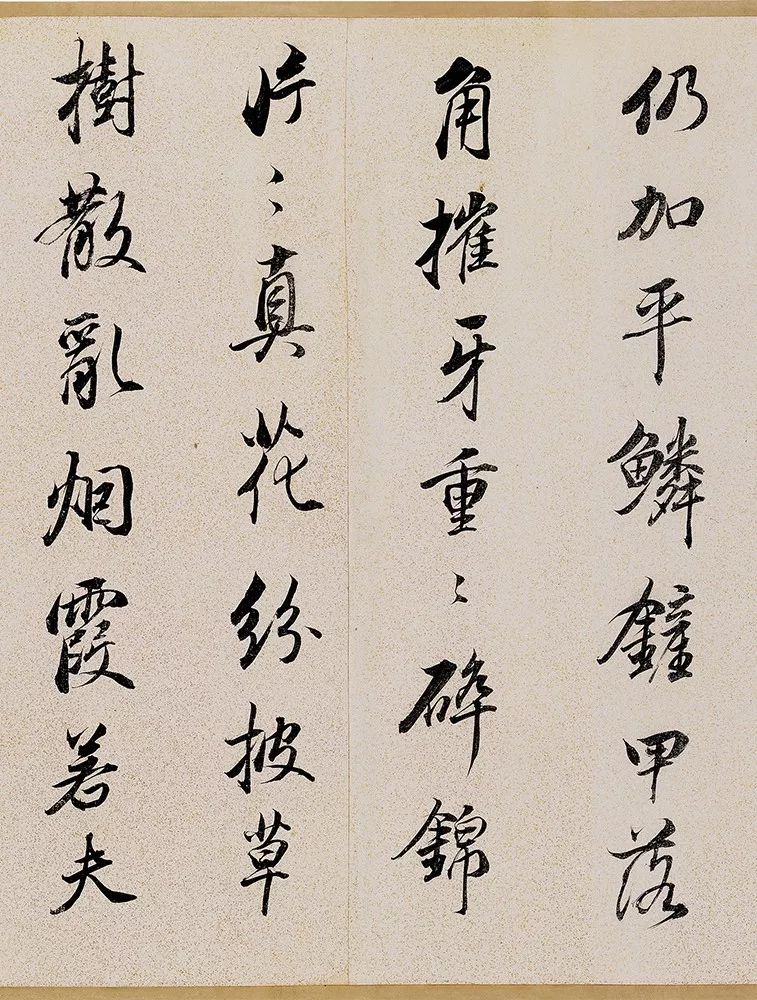 仍加平鱗鏟甲落
角摧牙重〻碎錦
片〻真花紛披草
樹散亂烟霞若夫